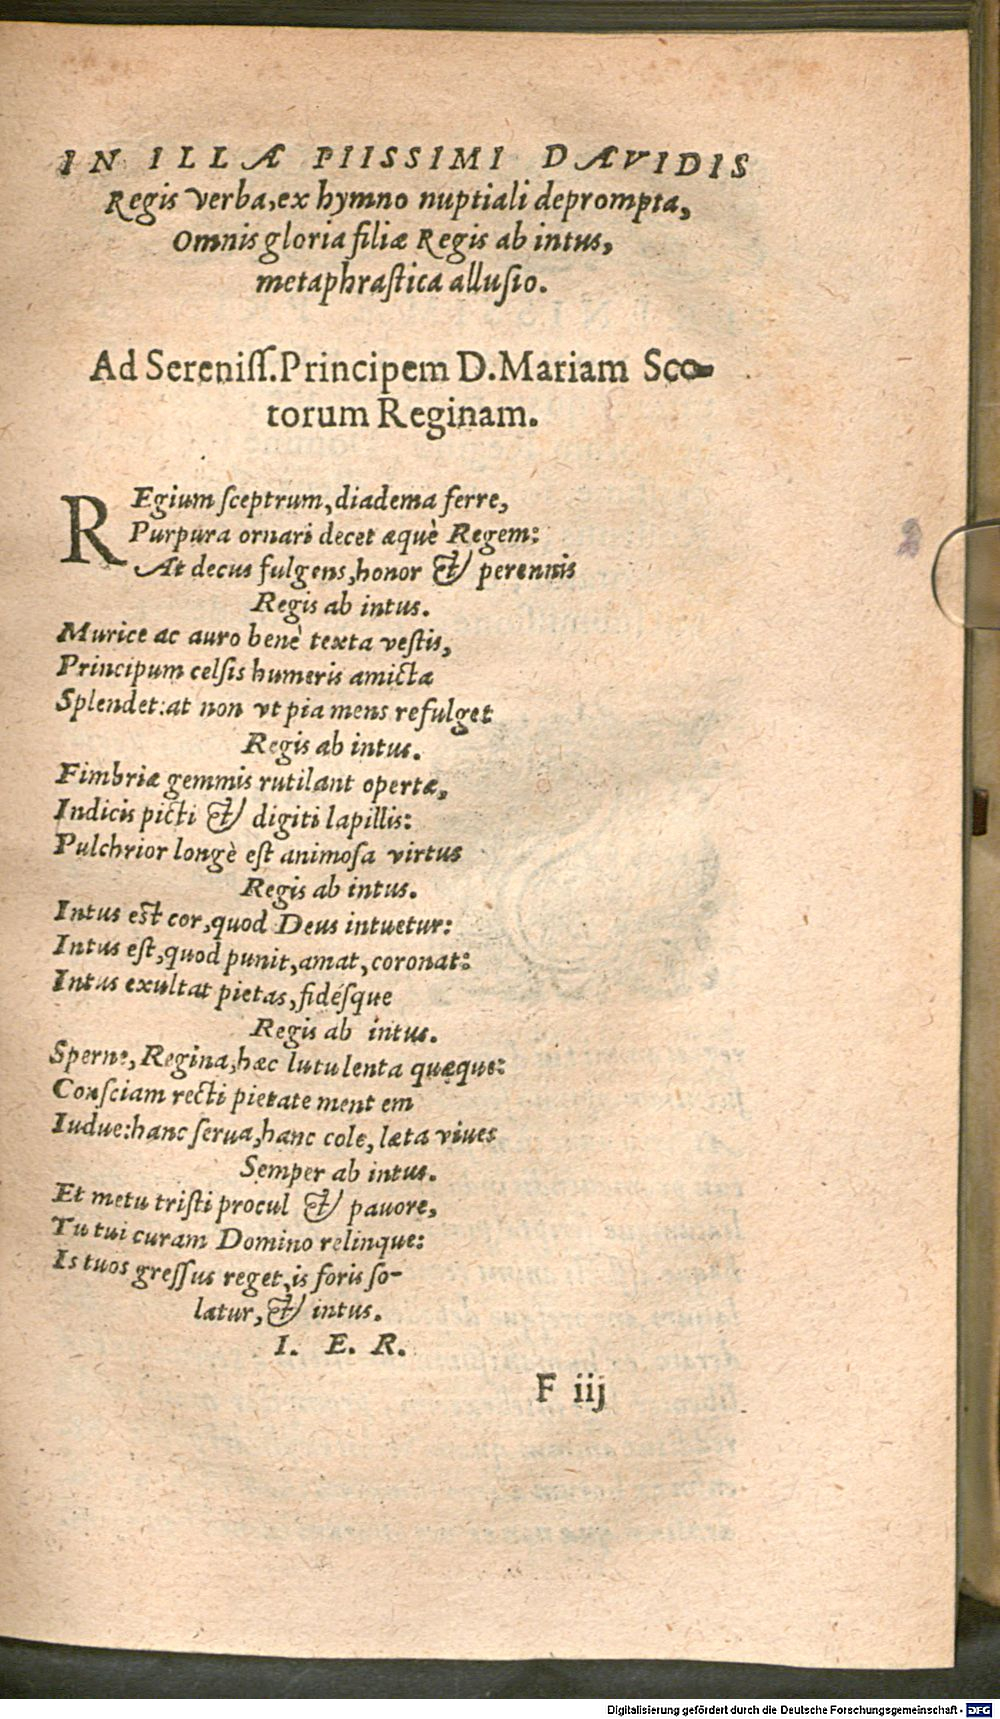 IN ILLÆ PIISSIMI DAVIDIS
Regis verba, ex hymno nuptiali deprompta,
Omnis gloria filiæ Regis ab intus,
metaphraſtica alluſio.
Ad Sereniſſ. Principem D. Mariam Sco-
torum Reginam.
REgium ſceptrum, diadema ferre,
Purpura ornari decet æquè Regem:
At decus fulgens, honor & perennis
Regis ab intus.
Murice ac auro benè texta veſtis,
Principum celſis humeris amicta
Splendet: at non vt pia mens refulget
Regis ab intus.
Fimbriæ gemmis rutilant opertæ,
Indicis picti & digiti lapillis:
Pulchrior longè eſt animoſa virtus
Regis ab intus.
Intus eſt cor, quod Deus intuetur:
Intus eſt, quod punit, amat, coronat:
Intus exultat pietas, fidéſque
Regis ab intus.
Sperne, Regina, hæc lutulenta quæque:
Conſciam recti pietate ment em
Indue: hanc ſerua, hanc cole, læta viues
Semper ab intus.
Et metu triſti procul & pauore,
Tu tui curam Domino relinque:
Is tuos greſſus reget, is foris ſo-
latur, & intus.
I. E. R.
F iij
Digitalisierung gefördert durch die Deutsche Forschungsgemeinschaft - DFG